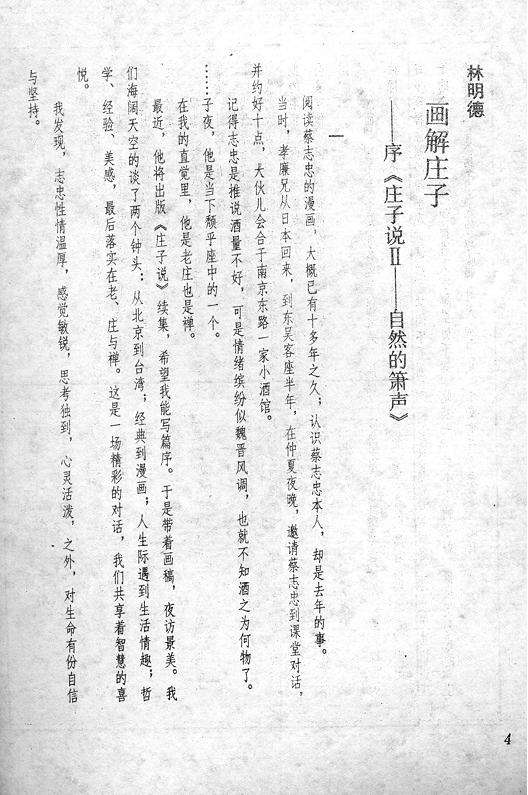 林明德
画解庄子
——序《庄子说Ⅱ——自然的箫声》
一
阅读蔡志忠的漫画，大概已有十多年之久；认识蔡志忠本人，却是去年的事。
当时，孝廉兄从日本回来，到东吴客座半年，在仲夏夜晚，邀请蔡志忠到课堂对话，
并约好十点，大伙儿会合于南京东路一家小酒馆。
记得志忠是推说酒量不好，可是情绪缤纷似魏晋风调，也就不知酒之为何物了。
……子夜，他是当下颓乎座中的一个。
在我的直觉里，他是老庄也是禅。
最近，他将出版《庄子说》续集，希望我能写篇序。于是带着画稿，夜访景美。我
们海阔天空的谈了两个钟头：从北京到台湾；经典到漫画；人生际遇到生活情趣；哲
学、经验、美感，最后落实在老、庄与禅。这是一场精彩的对话，我们共享着智慧的喜
悦。
我发现，志忠性情温厚，感觉敏锐，思考独到，心灵活泼，之外，对生命有份自信
与坚持。
4